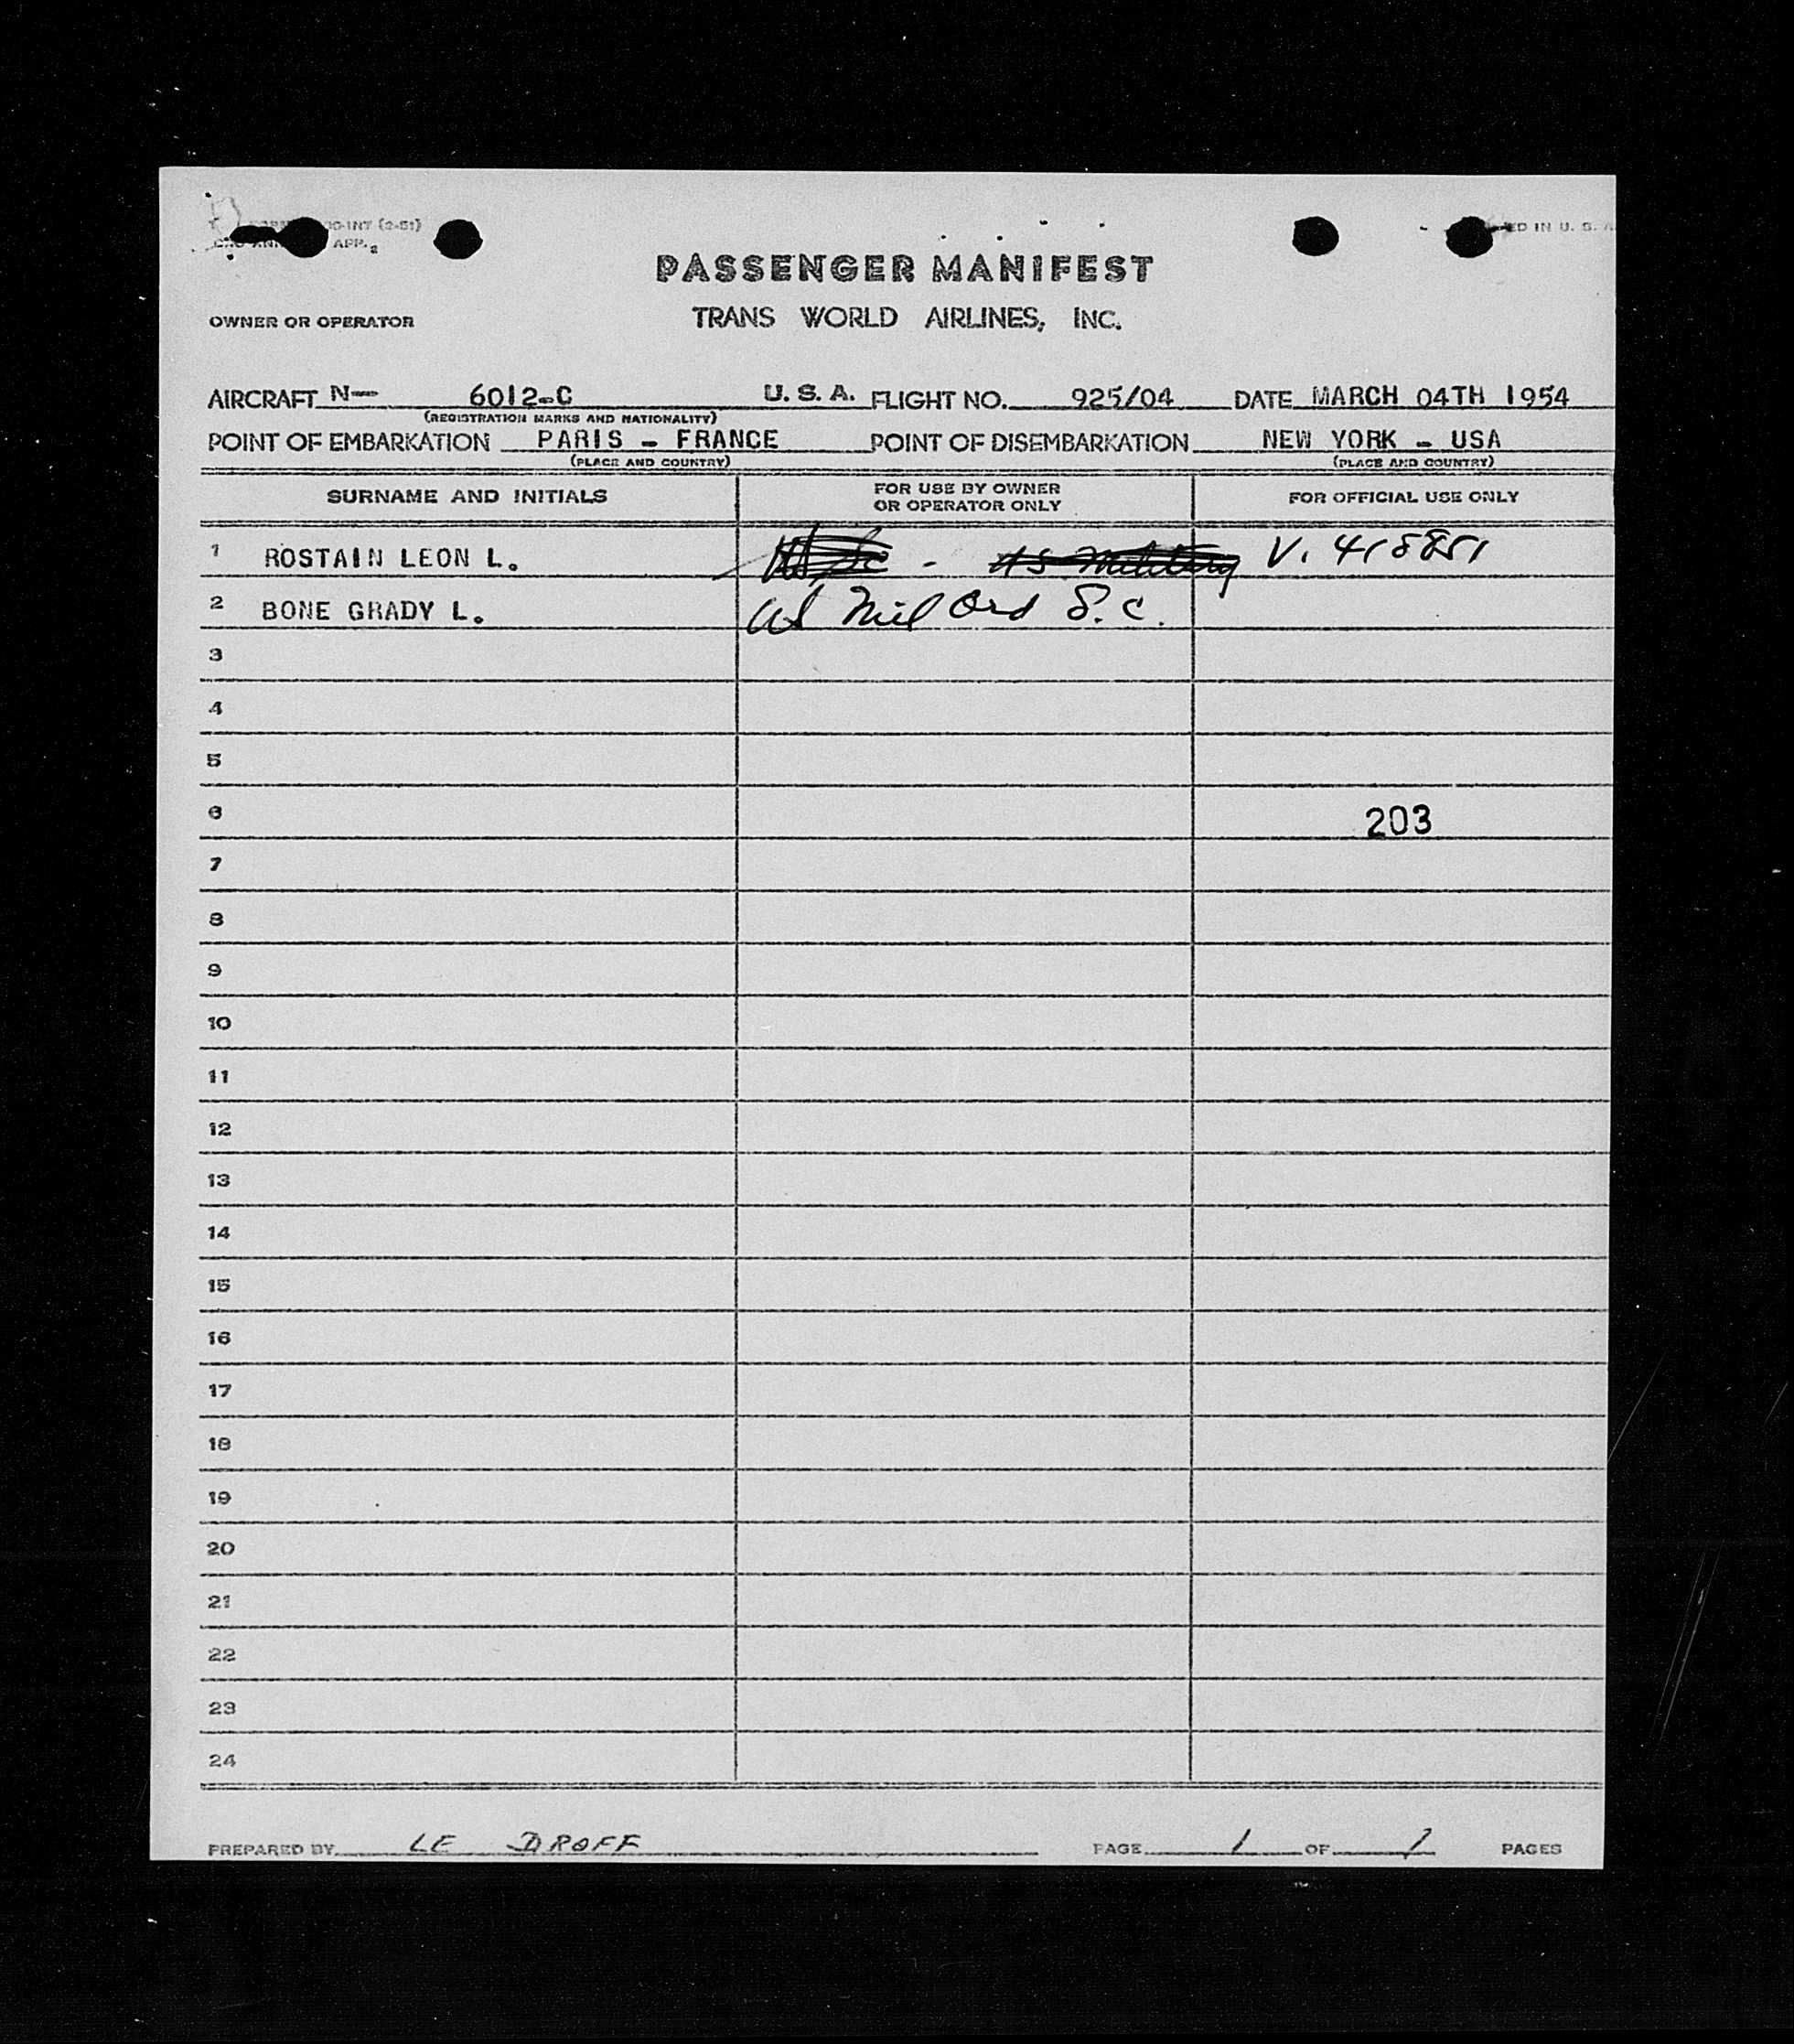 APP. 2
PASSENGER MANIFEST
OWNER OR OPERATOR TRANS WORLD AIRLINES, INC.
AIRCRAFT N- 6012-C U. S. A. FLIGHT NO. 925/04 DATE MARCH 04TH 1954
(REGISTRATION MARKS AND NATIONALITY)
POINT OF EMBARKATION PARIS - FRANCE POINT OF DISEMBARKATION NEW YORK - USA
(PLACE AND COUNTRY) (PLACE AND COUNTRY)
SURNAME AND INITIALS FOR USE BY OWNER OR OPERATOR ONLY FOR OFFICIAL USE ONLY
1 ROSTAIN LEON L. - US Military V. 415851
2 BONE GRADY L. US Mil Ord S. C.
3
4
5
6 203
7
8
9
10
11
12
13
14
15
16
17
18
19
20
21
22
23
24
PREPARED BY LE DROFF PAGE 1 OF 1 PAGES